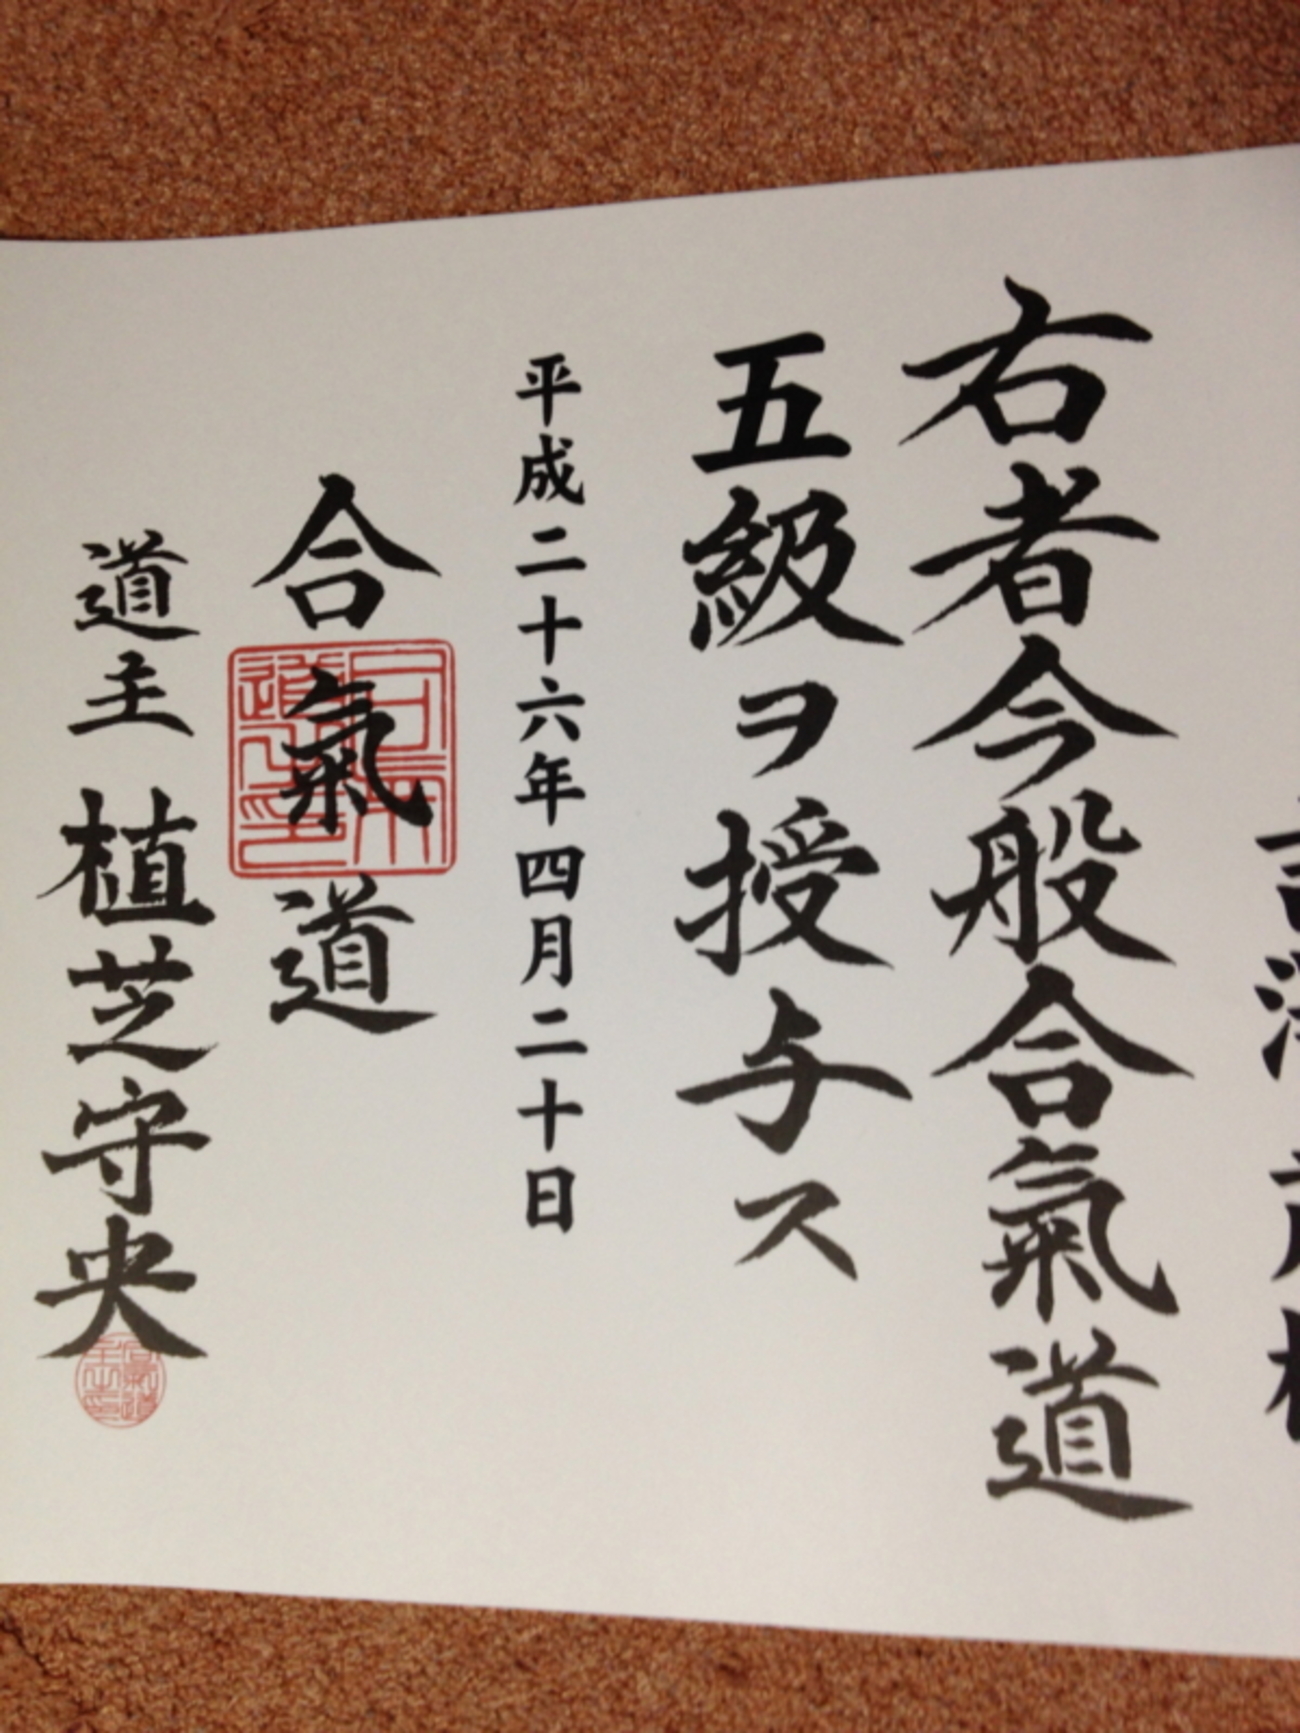 右者今般合氣道
五級ヲ授与ス
平成二十六年四月二十日
合氣道
道主 植芝守央